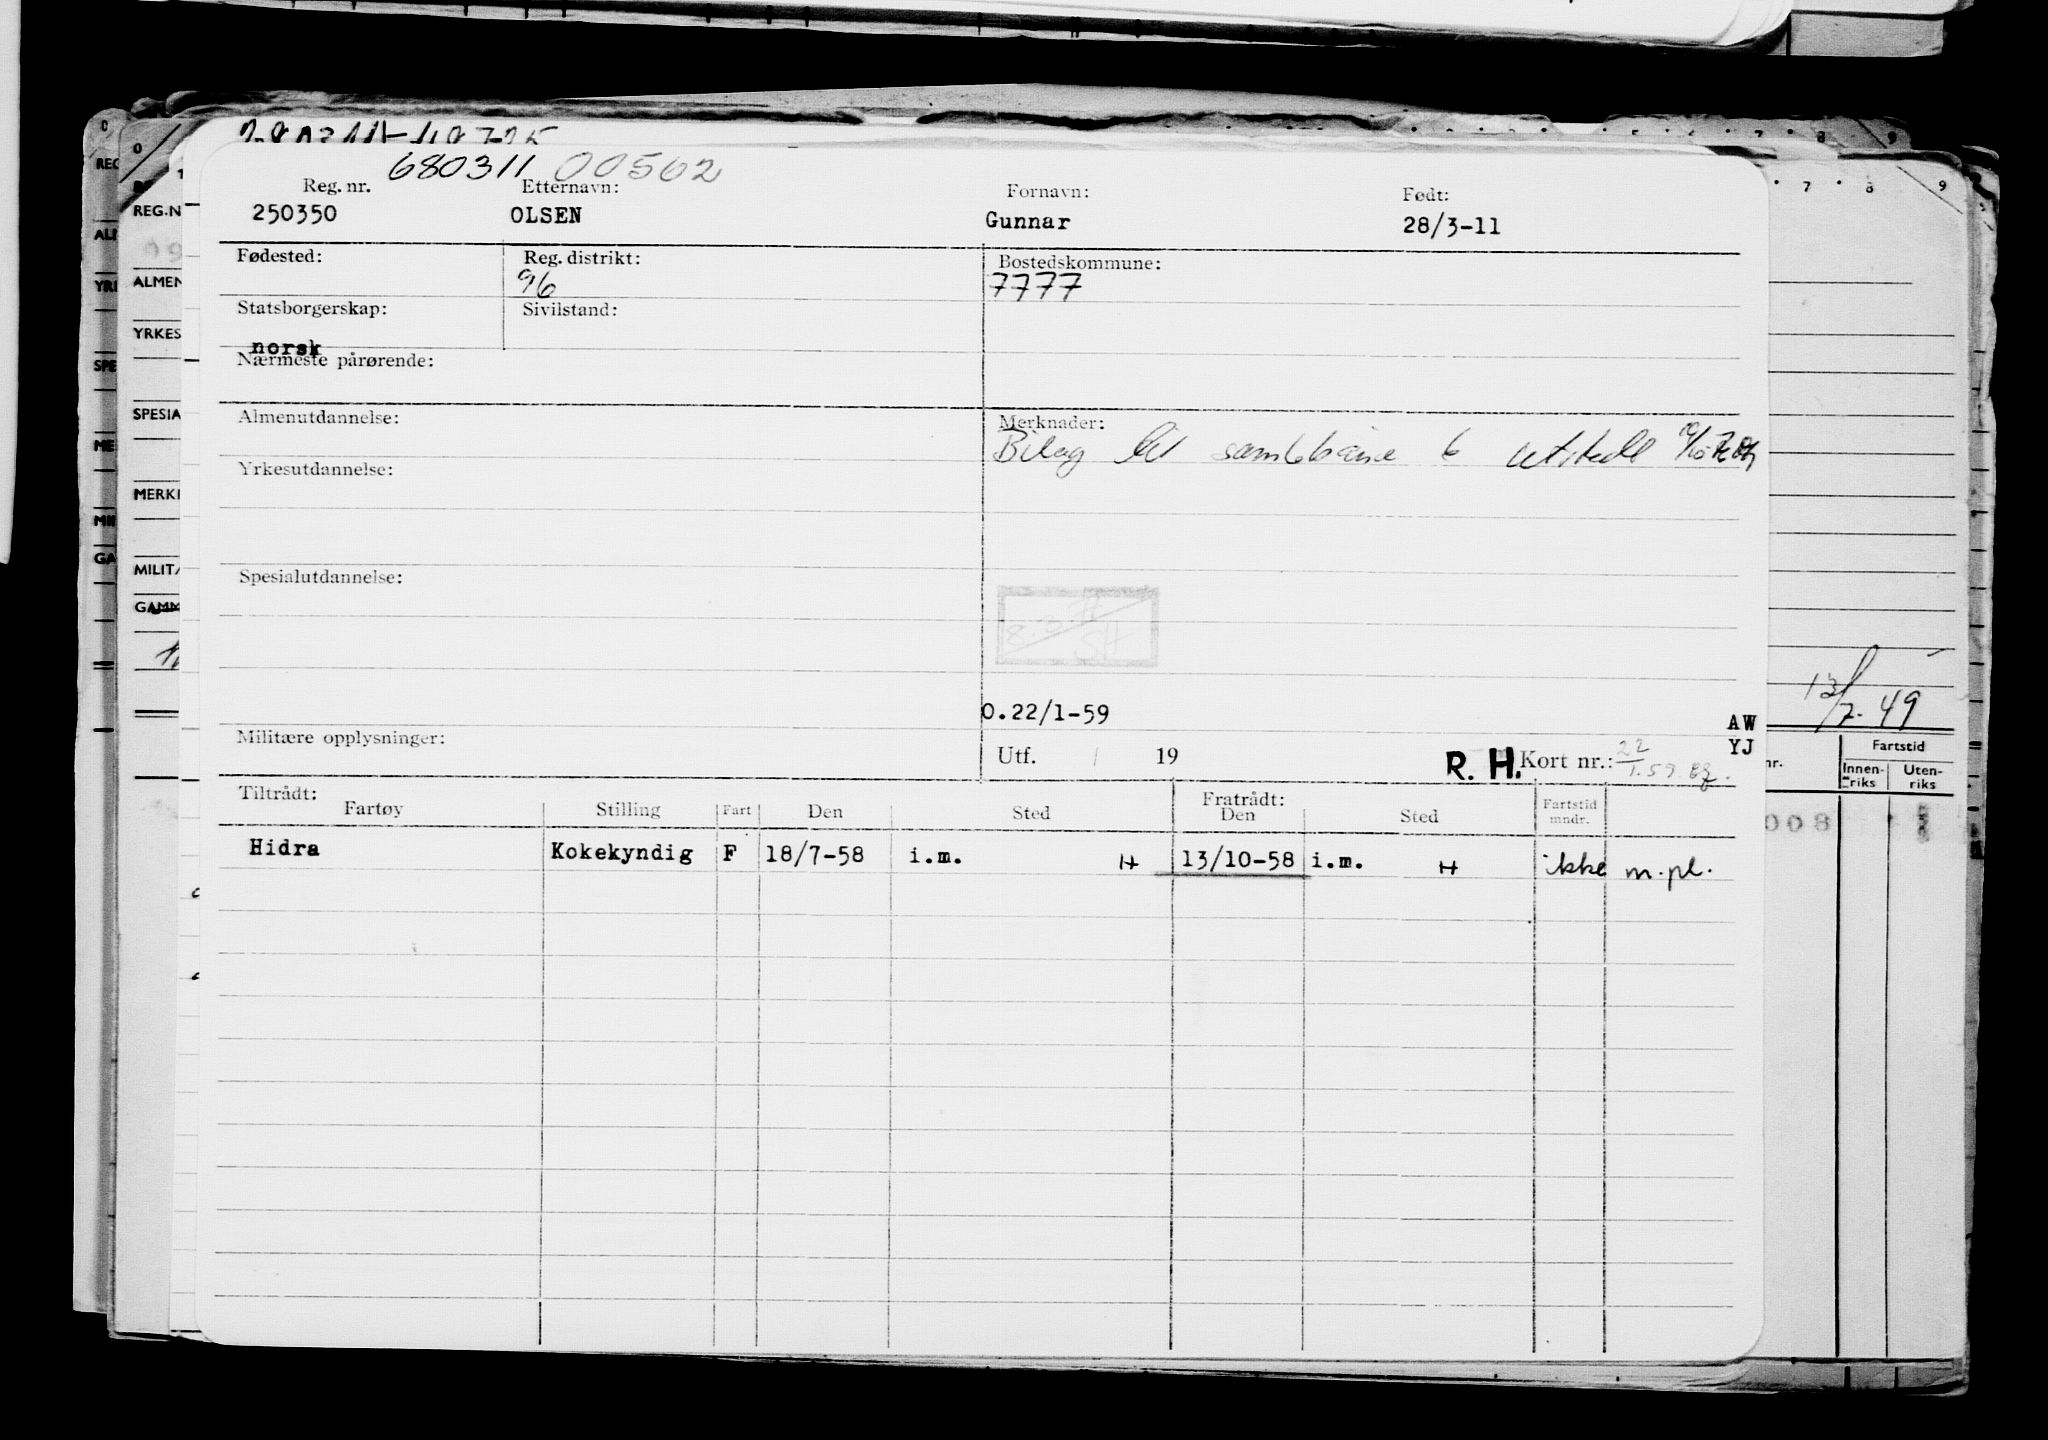 680311 00502
Reg. nr. Etternavn: Fornavn: Født:
250350 OLSEN Gunnar 28/3-11
Fødested: Reg. distrikt: Bostedskommune:
96 7777
Statsborgerskap: Sivilstand:
norsk
Nærmeste pårørende:
Almenutdannelse: Merknader:
Bilag til utstedt
Yrkesutdannelse:
Spesialutdannelse:
8.3.71
SH
O.22/1-59
AW
Militære opplysninger: Utf. 19 R. H. Kort nr.: 22/1.59
YJ
Tiltrådt: Fratrådt:
Fartøy Stilling Fart Den Sted Den Sted Fartstid mndr.
Hidra Kokekyndig F 18/7-58 i.m. H 13/10-58 i.m. H ikke m.pl.
REG.N
ALMEN
YRKES
SPESIA
MERKI
MILITÆ
GAMM
7 8 9
13/7-49
nr. Fartstid
Innen-riks Uten-riks
008